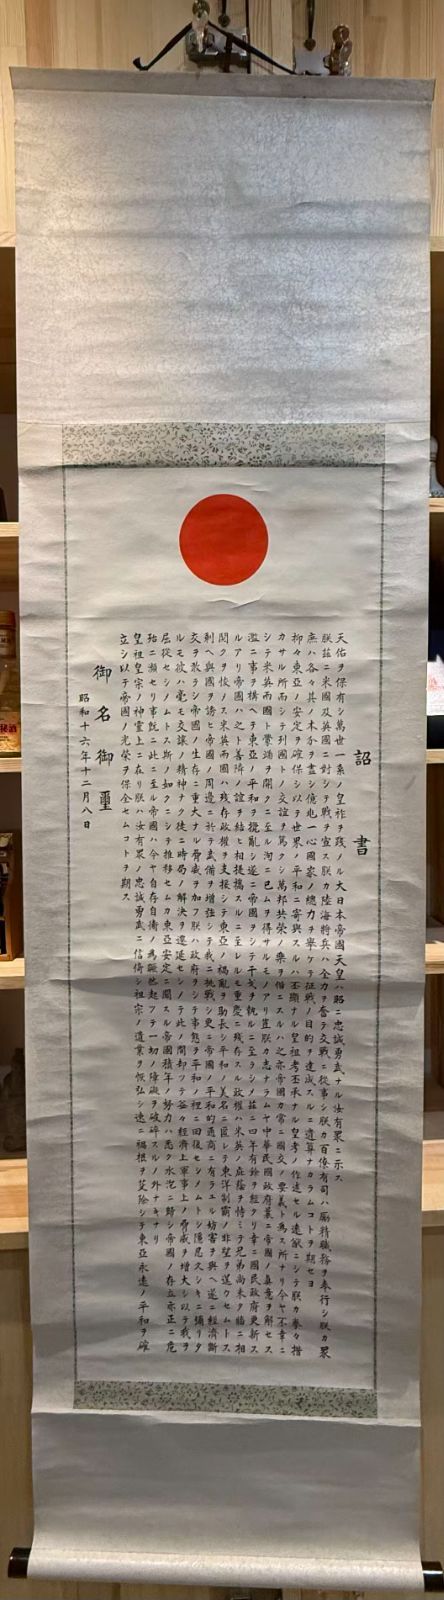 詔書
天佑ヲ保有シ萬世一系ノ皇祚ヲ踐メル大日本帝國天皇ハ昭ニ忠誠勇武ナル汝有衆ニ示ス
朕茲ニ米國及英國ニ對シテ戰ヲ宣ス朕カ陸海將兵ハ全力ヲ奮テ交戰ニ從事シ朕カ百僚有司ハ勵精職務ヲ奉行シ朕カ衆
庶ハ各々其ノ本分ヲ盡シ億兆一心國家ノ總力ヲ擧ケテ征戰ノ目的ヲ達成スルニ遺算ナカラムコトヲ期セヨ
抑々東亞ノ安定ヲ確保シ以テ世界ノ平和ニ寄與スルハ丕顯ナル皇祖考丕承ナル皇考ノ作述セル遠猷ニシテ朕カ拳々措
カサル所而シテ列國トノ交誼ヲ篤クシ萬邦共榮ノ樂ヲ偕ニスルハ之亦帝國カ常ニ國交ノ要義ト爲ス所ナリ今ヤ不幸ニ
シテ米英兩國ト釁端ヲ開クニ至ル洵ニ已ムヲ得サルモノアリ豈朕カ志ナラムヤ中華民國政府曩ニ帝國ノ眞意ヲ解セス
濫ニ事ヲ構ヘテ東亞ノ平和ヲ攪亂シ遂ニ帝國ヲシテ干戈ヲ執ルニ至ラシメ茲ニ四年有餘ヲ經タリ幸ニ國民政府更新ス
ルアリ帝國ハ之ト善隣ノ誼ヲ結ヒ相提攜スルニ至レルモ重慶ニ殘存スル政權ハ米英ノ庇蔭ヲ恃ミテ兄弟尚未タ牆ニ相
鬩クヲ悛メス米英兩國ハ殘存政權ヲ支援シテ東亞ノ禍亂ヲ助長シ平和ノ美名ニ匿レテ東洋制覇ノ非望ヲ逞ウセムトス
剩ヘ與國ヲ誘ヒ帝國ノ周邊ニ於テ武備ヲ增強シテ我ニ挑戰シ更ニ帝國ノ平和的通商ニ有ラユル妨害ヲ與ヘ遂ニ經濟斷
交ヲ敢テシ帝國ノ生存ニ重大ナル脅威ヲ加フ朕ハ政府ヲシテ事態ヲ平和ノ裡ニ回復セシメムトシ隱忍久シキニ彌リタ
ルモ彼ハ毫モ交讓ノ精神ナク徒ニ時局ノ解決ヲ遷延セシメテ此ノ間却ツテ益々經濟上軍事上ノ脅威ヲ增大シ以テ我ヲ
屈從セシメムトス斯ノ如クニシテ推移セムカ東亞安定ニ關スル帝國積年ノ努力ハ悉ク水泡ニ歸シ帝國ノ存立亦正ニ危
殆ニ瀕セリ事既ニ此ニ至ル帝國ハ今ヤ自存自衞ノ爲蹶然起ツテ一切ノ障礙ヲ破碎スルノ外ナキナリ
皇祖皇宗ノ神靈上ニ在リ朕ハ汝有衆ノ忠誠勇武ニ信倚シ祖宗ノ遺業ヲ恢弘シ速ニ禍根ヲ芟除シテ東亞永遠ノ平和ヲ確
立シ以テ帝國ノ光榮ヲ保全セムコトヲ期ス
御名御璽
昭和十六年十二月八日